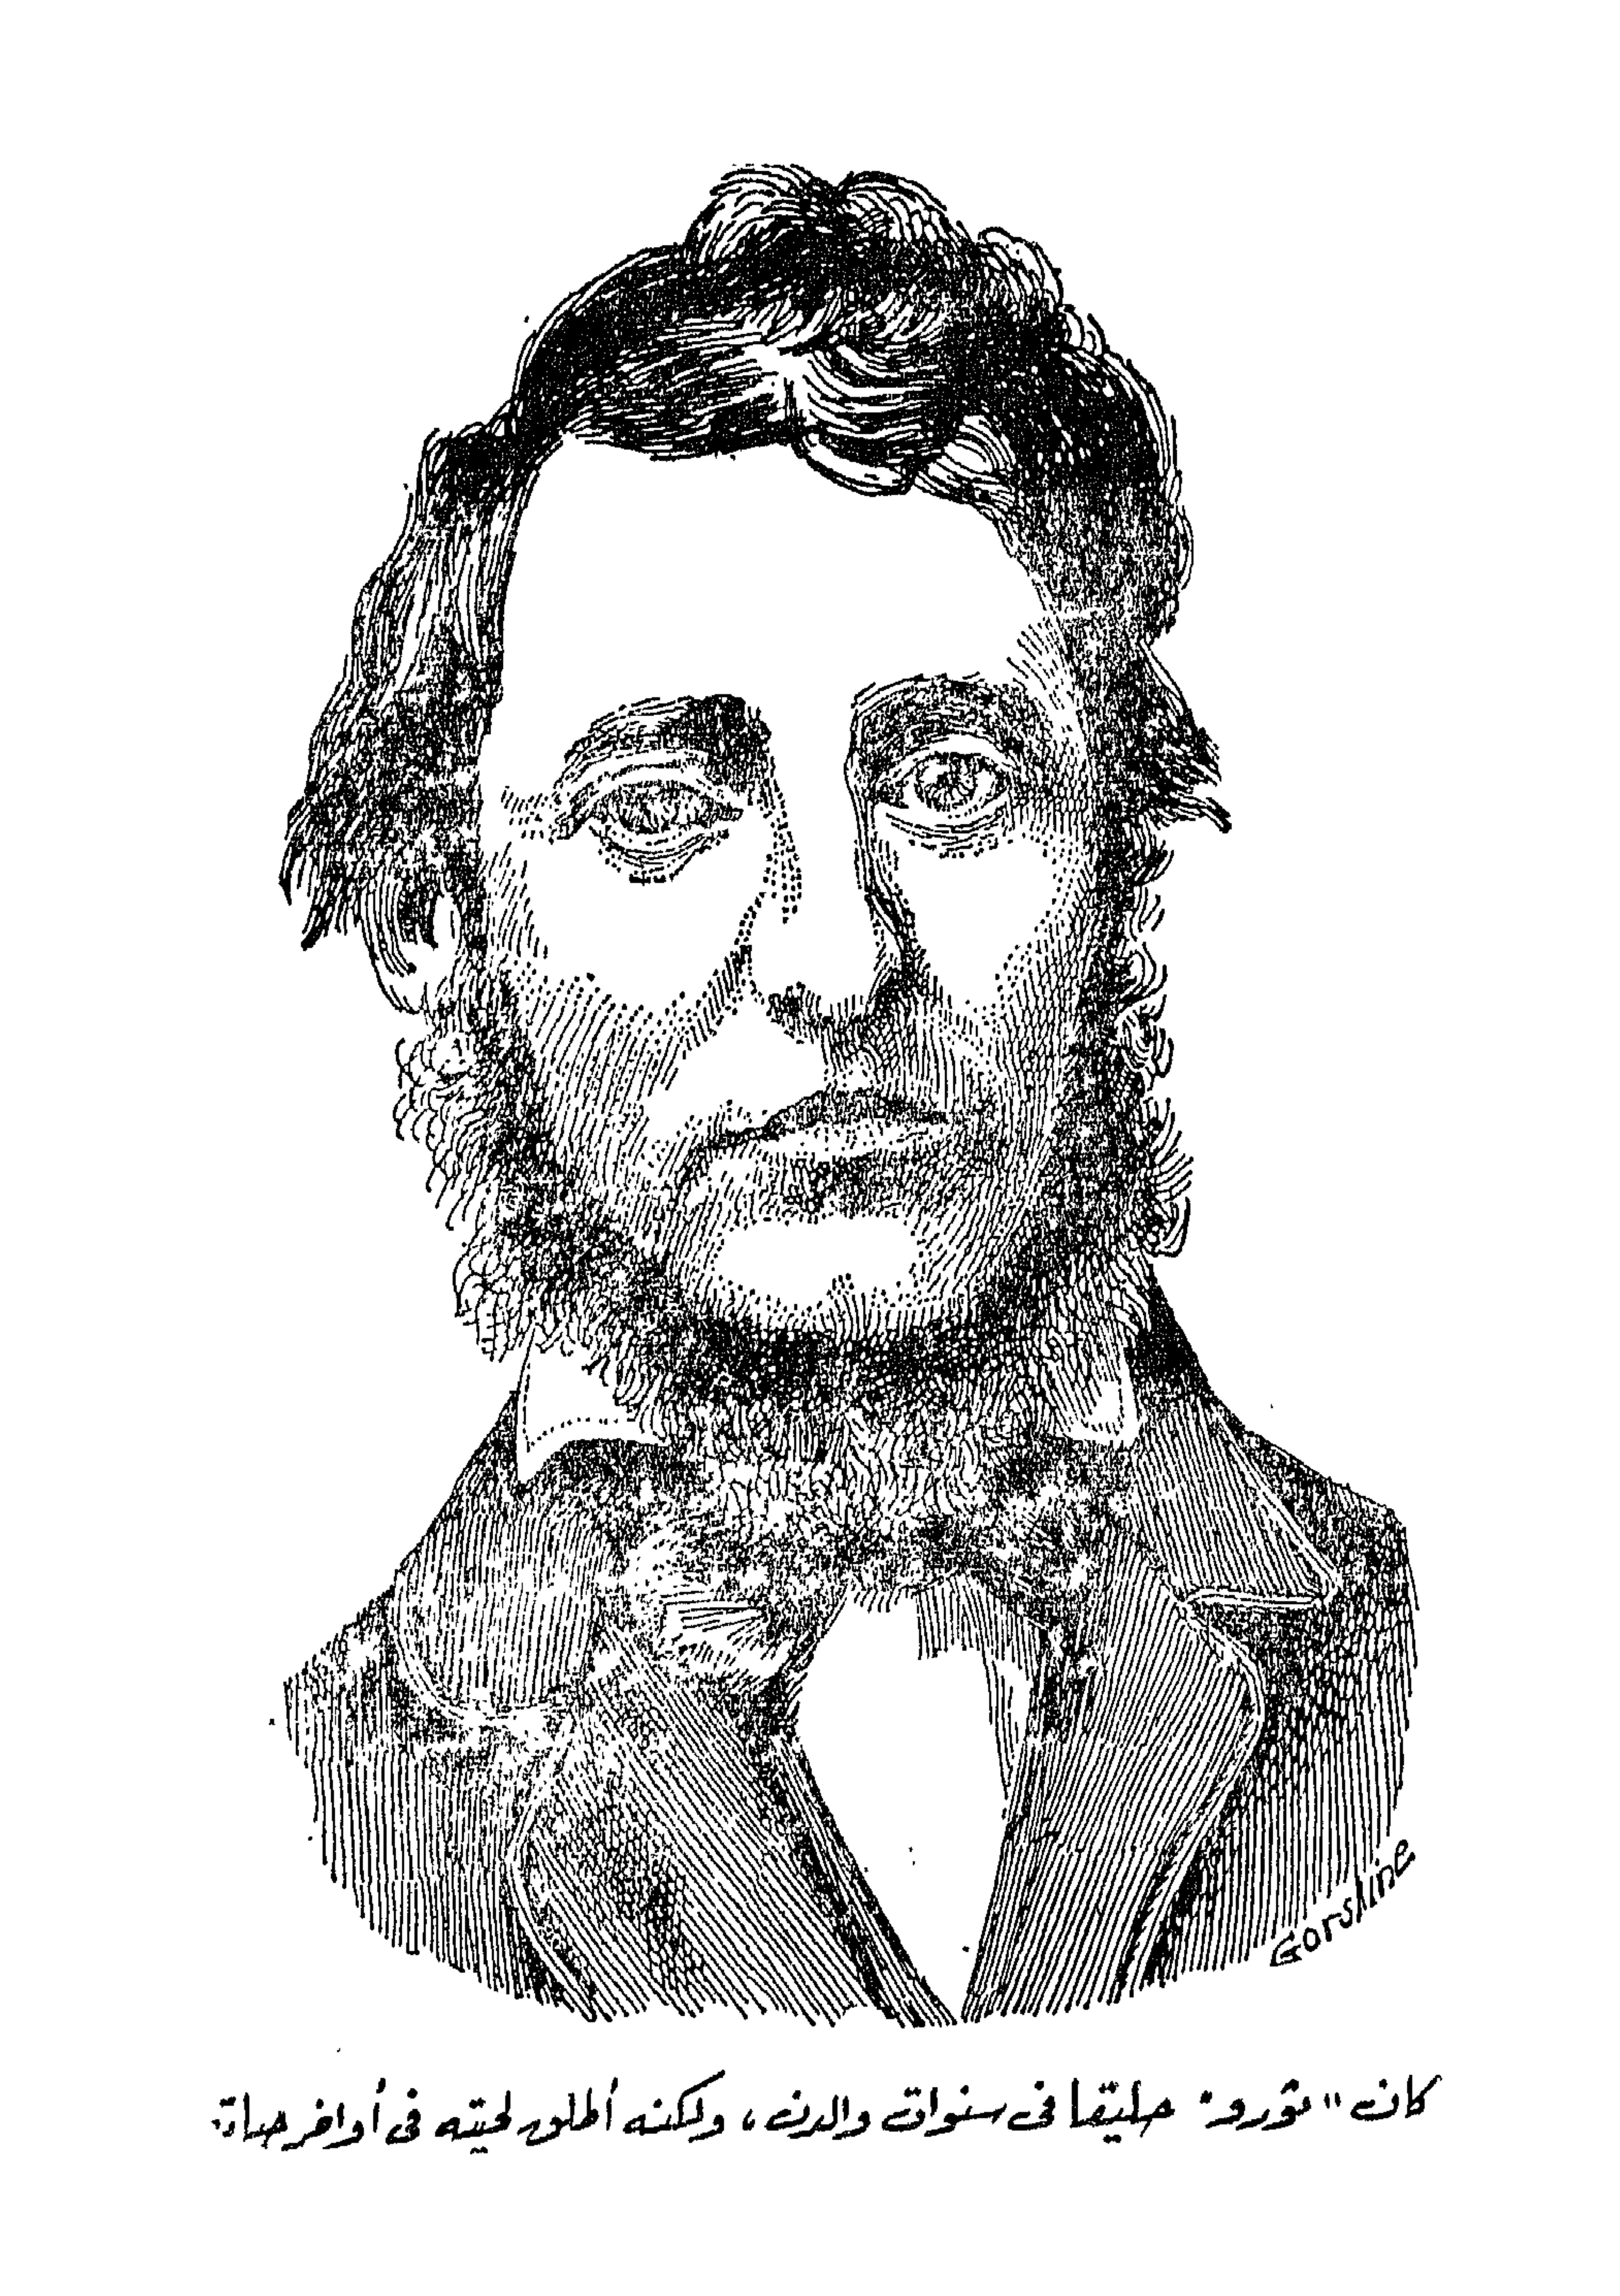 Gorsline
كان "ثورو" حليقا فى سنوات والدن، ولكنه أطلق لحيته فى أواخر حياته